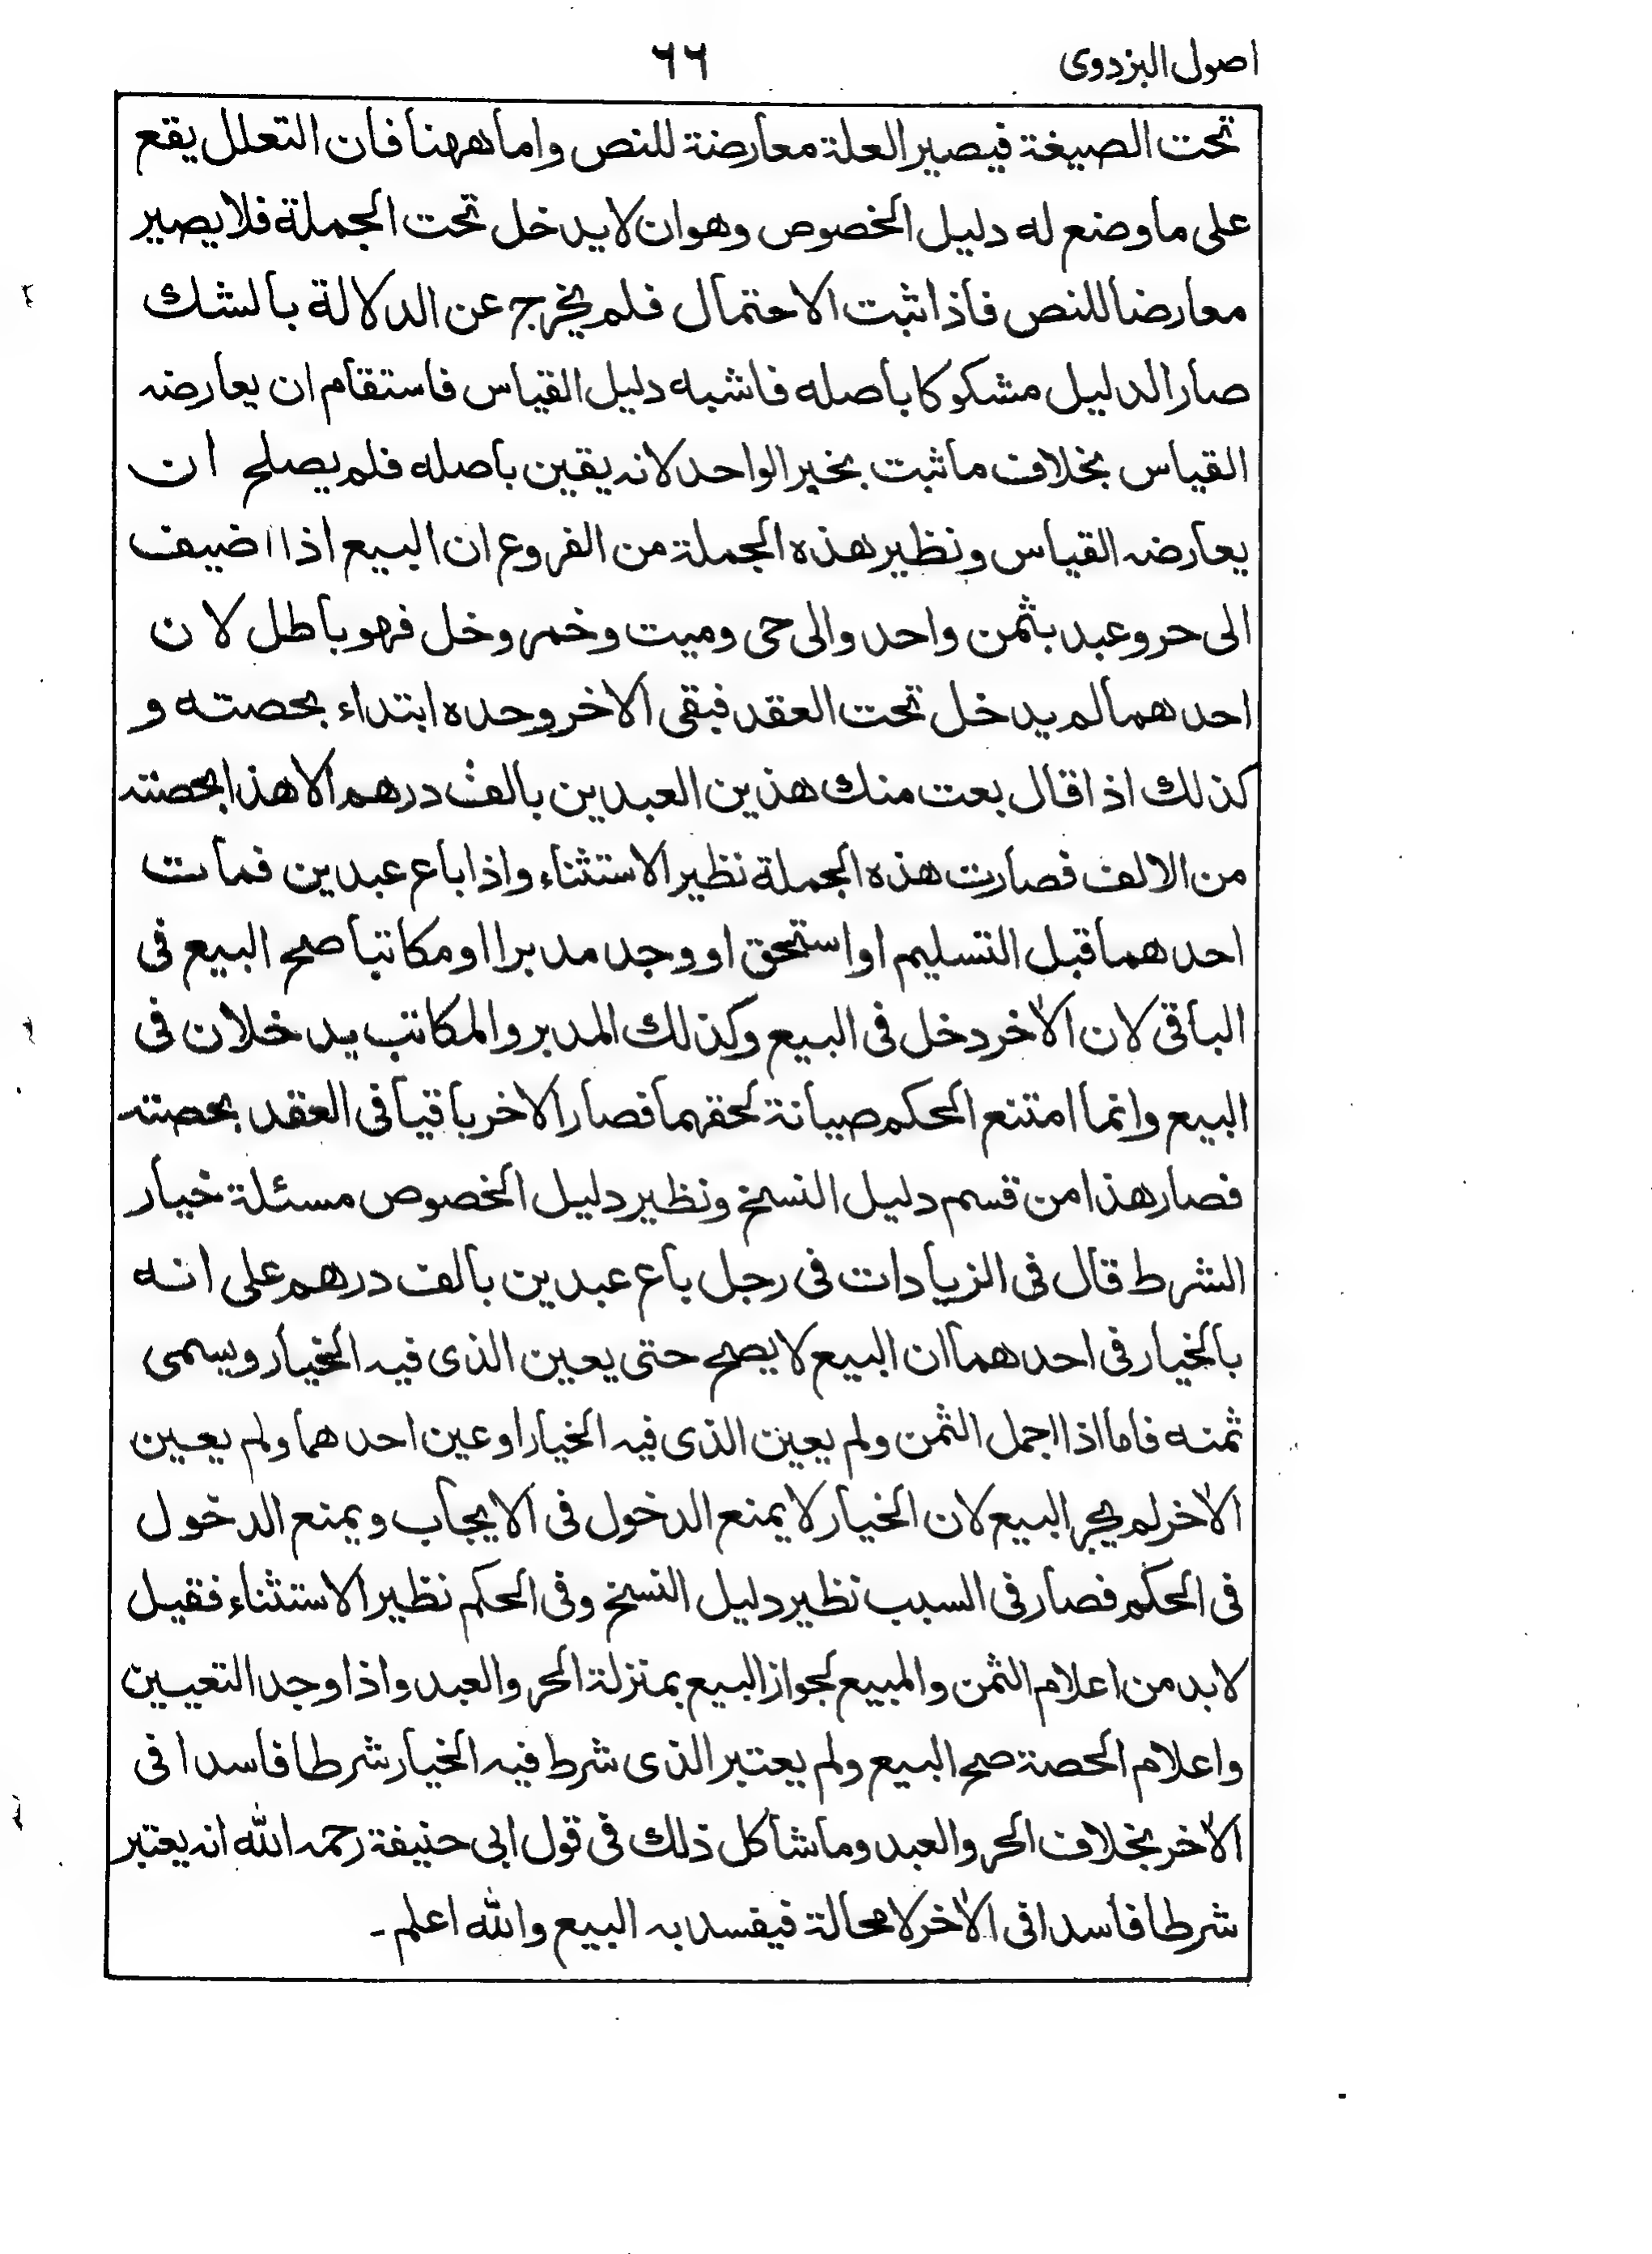 اصول البزدوی ٦٦
تحت الصيغة فيصير العلة معارضة للنص واما ههنا فان التعلل يقع
على ما وضع له دليل الخصوص وهو ان لا يدخل تحت الجملة فلا يصير
معارضا للنص فاذا ثبت الاحتمال فلم يخرج عن الدلالة بالشك
صار الدليل مشكوكا باصله فاشبه دليل القياس فاستقام ان يعارضه
القياس بخلاف ما ثبت بخبر الواحد لانه يقين باصله فلم يصلح ان
يعارضه القياس ونظير هذه الجملة من الفروع ان البيع اذا اضيف
الى حر وعبد بثمن واحد والى حى وميت وخمر وخل فهو باطل لان
احدهما لم يدخل تحت العقد فبقى الاخر وحده ابتداء بحصته و
كذلك اذا قال بعت منك هذين العبدين بالف درهم الا هذا بحصته
من الالف فصارت هذه الجملة نظير الاستثناء واذا باع عبدين فمات
احدهما قبل التسليم او استحق او وجد مدبرا او مكاتبا صح البيع فى
الباقى لان الاٰخر دخل فى البيع وكذلك المدبر والمكاتب يدخلان فى
البيع وانما امتنع الحكم صيانة لحقهما فصار الاخر باقيا فى العقد بحصته
فصار هذا من قسم دليل النسخ ونظير دليل الخصوص مسئلة خيار
الشرط قال فى الزيادات فى رجل باع عبدين بالف درهم على انه
بالخيار فى احدهما ان البيع لا يصح حتى يعين الذى فيه الخيار ويسمى
ثمنه فاما اذا اجمل الثمن ولم يعين الذى فيه الخيار او عين احدهما ولم يعين
الاٰخر لم يجز البيع لان الخيار لا يمنع الدخول فى الايجاب ويمنع الدخول
فى الحكم فصار فى السبب نظير دليل النسخ وفى الحكم نظير الاستثناء فقيل
لا بد من اعلام الثمن والمبيع لجواز البيع بمنزلة الحر والعبد واذا وجد التعيين
واعلام الحصة صح البيع ولم يعتبر الذى شرط فيه الخيار شرطا فاسدا فى
الاٰخر بخلاف الحر والعبد وما شاكل ذلك فى قول ابى حنيفة رحمه الله انه يعتبر
شرطا فاسدا فى الاٰخر لا محالة فيفسد به البيع والله اعلم -